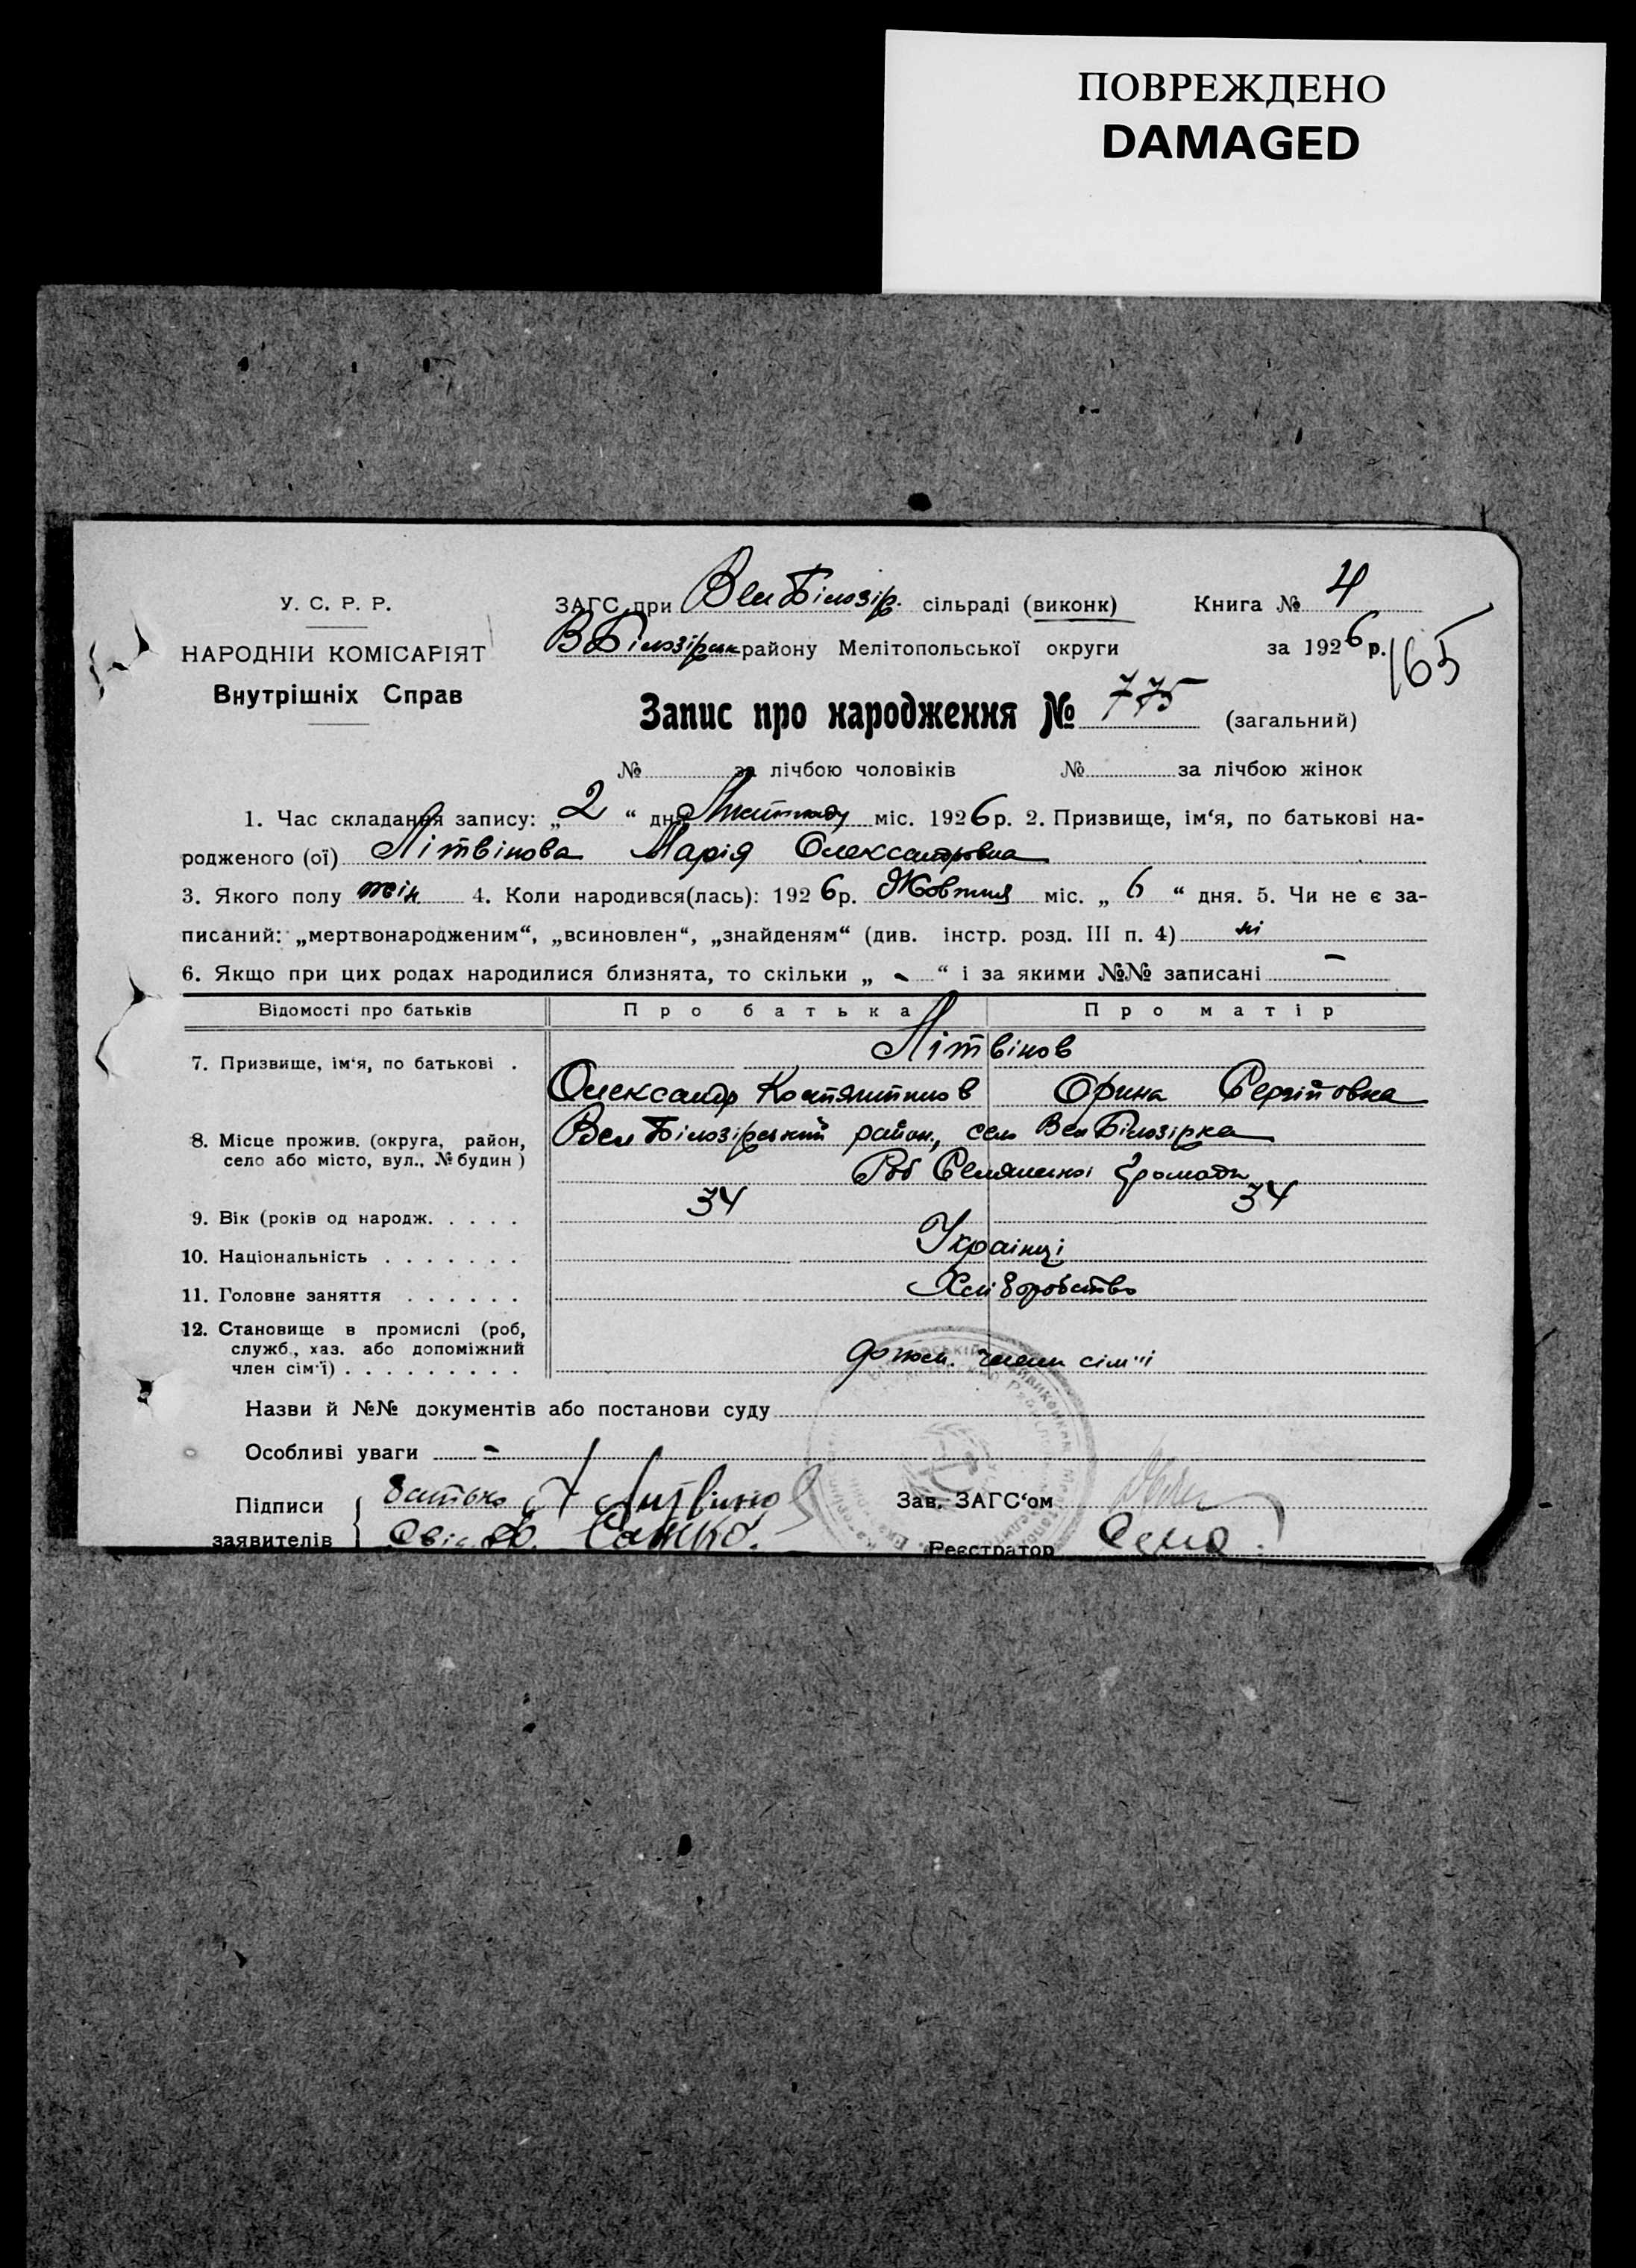 ПОВРЕЖДЕНО
DAMAGED
У. С. Р. Р.
НАРОДНІЙ КОМІСАРІЯТ
Внутрішніх Справ
ЗАГС при Вел Білозір. сільраді (виконк)
В Білозірськ району Мелітопольської округи
Книга № 4
за 1926 р.
165
Запис про народження № 775 (загальний)
№ за лічбою чоловіків № за лічбою жінок
1. Час складання запису: „2“ дня Листпаду міс. 1926 р. 2. Призвище, ім‘я, по батькові на-
родженого (ої) Літвінова Марія Олександровна
3. Якого полу жін 4. Коли народився(лась): 1926 р. Жовтня міс. „6“ дня. 5. Чи не є за-
писаний: „мертвонародженим“, „всиновлен“, „знайденям“ (див. інстр. розд. III п. 4) ні
6. Якщо при цих родах народилися близнята, то скільки „-“ і за якими №№ записані -
Відомості про батьків Про батька Про матір
7. Призвище, ім‘я, по батькові . Літвінов
Олександр Костянтинов Орина Сергійовна
8. Місце прожив. (округа, район, село або місто, вул., № будин) Вел Білозірський район., село Вел Білозірка
Громади
9. Вік (років од народж. . . . . 34 34
10. Національність . . . . . . . Українці
11. Головне заняття . . . . . . Хліборобство
12. Становище в промислі (роб, служб., хаз. або допоміжний член сім‘ї) . . . . . . . . . члени сім"ї
Назви й №№ документів або постанови суду
Особливі уваги -
Підписи заявителів { батько Літвінов
Зав. ЗАГС‘ом
Реєстратор